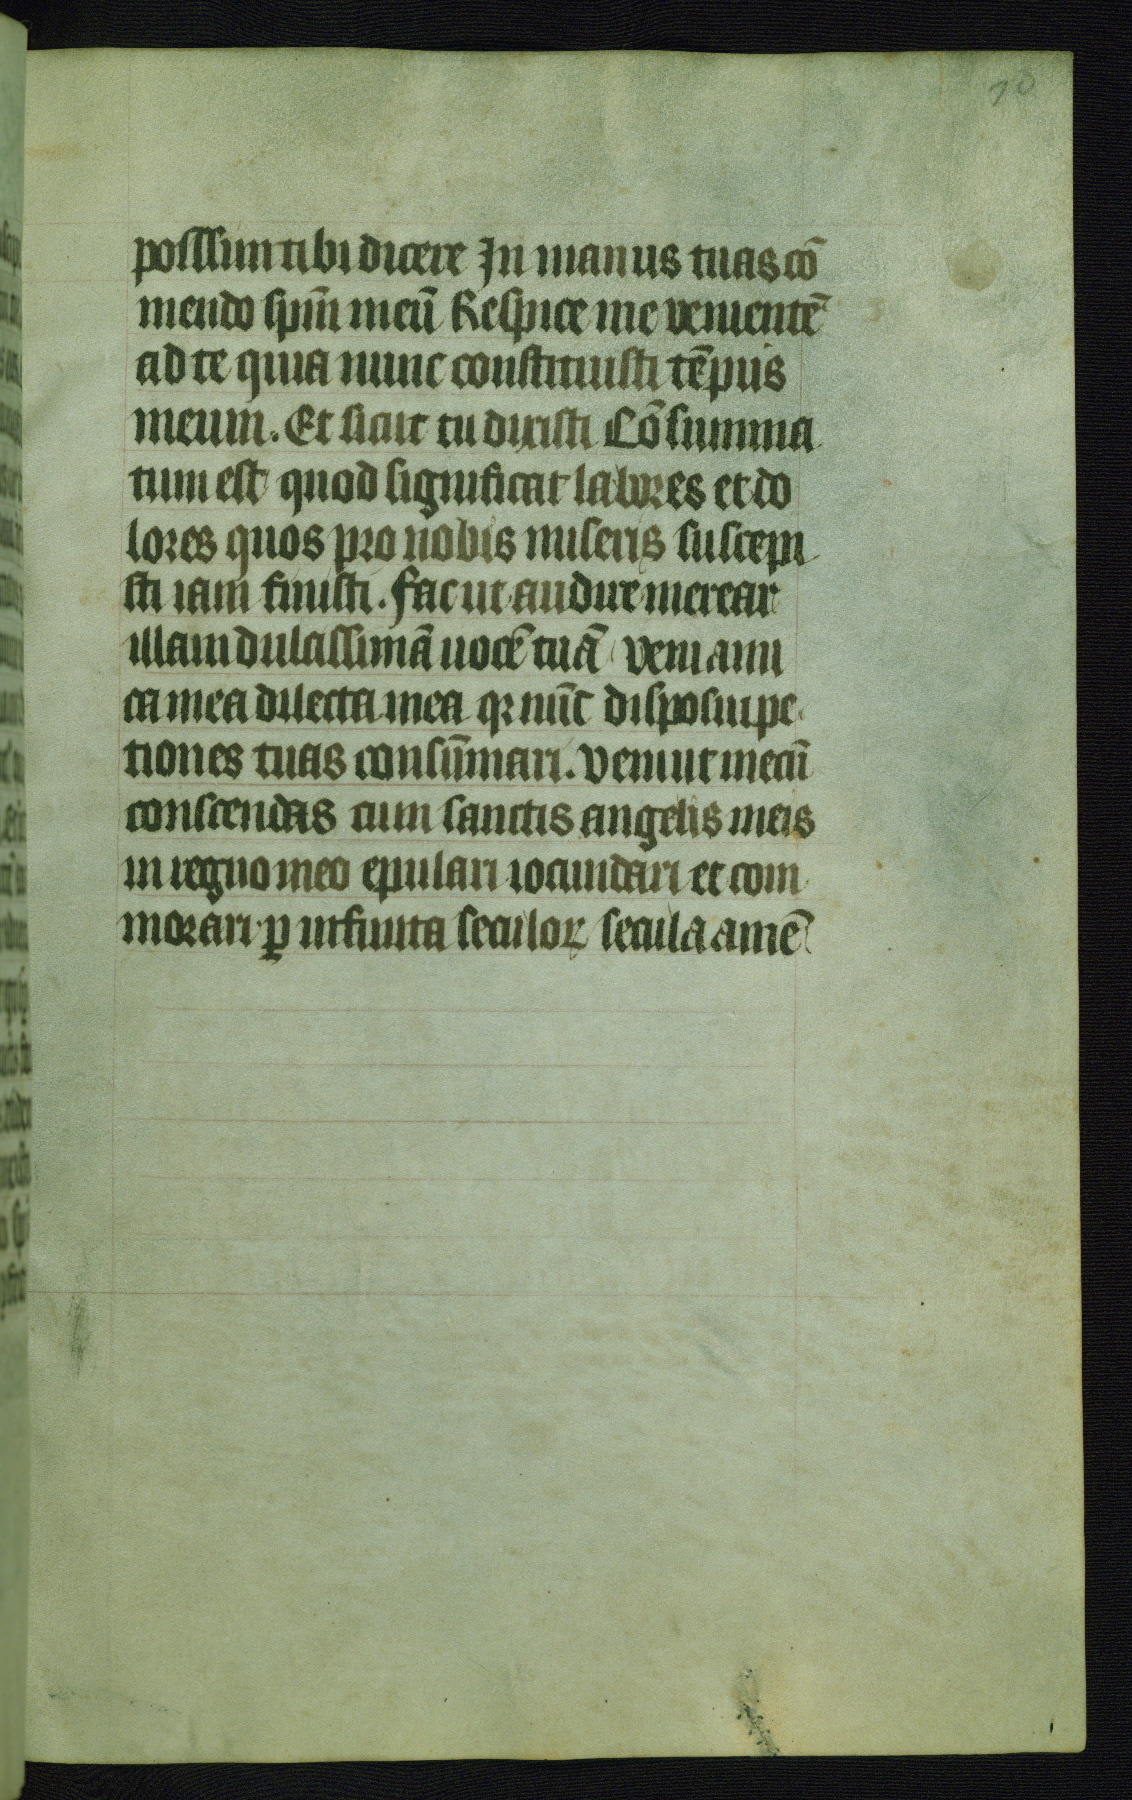 70
posssim tibi dicere In manus tuas cō
mendo spm̄ meū Respice me venientē
ad te quia nunc constituisti tēpus
meum. Et sicut tu dixisti Cōsumma
tum est quod significat labores et do
lores quos pro nobis miseris suscepi
sti iam finisti. fac ut audire merear
illam dulcissimā uocē tuā veni ami
ca mea dilecta mea qꝛ nūc disposui pe
tiones tuas consūmari. veni ut mecū
conscendas cum sanctis angelis meis
in regno meo epulari iocundari et com
morari ꝑ infinita seculoꝝ secula amē